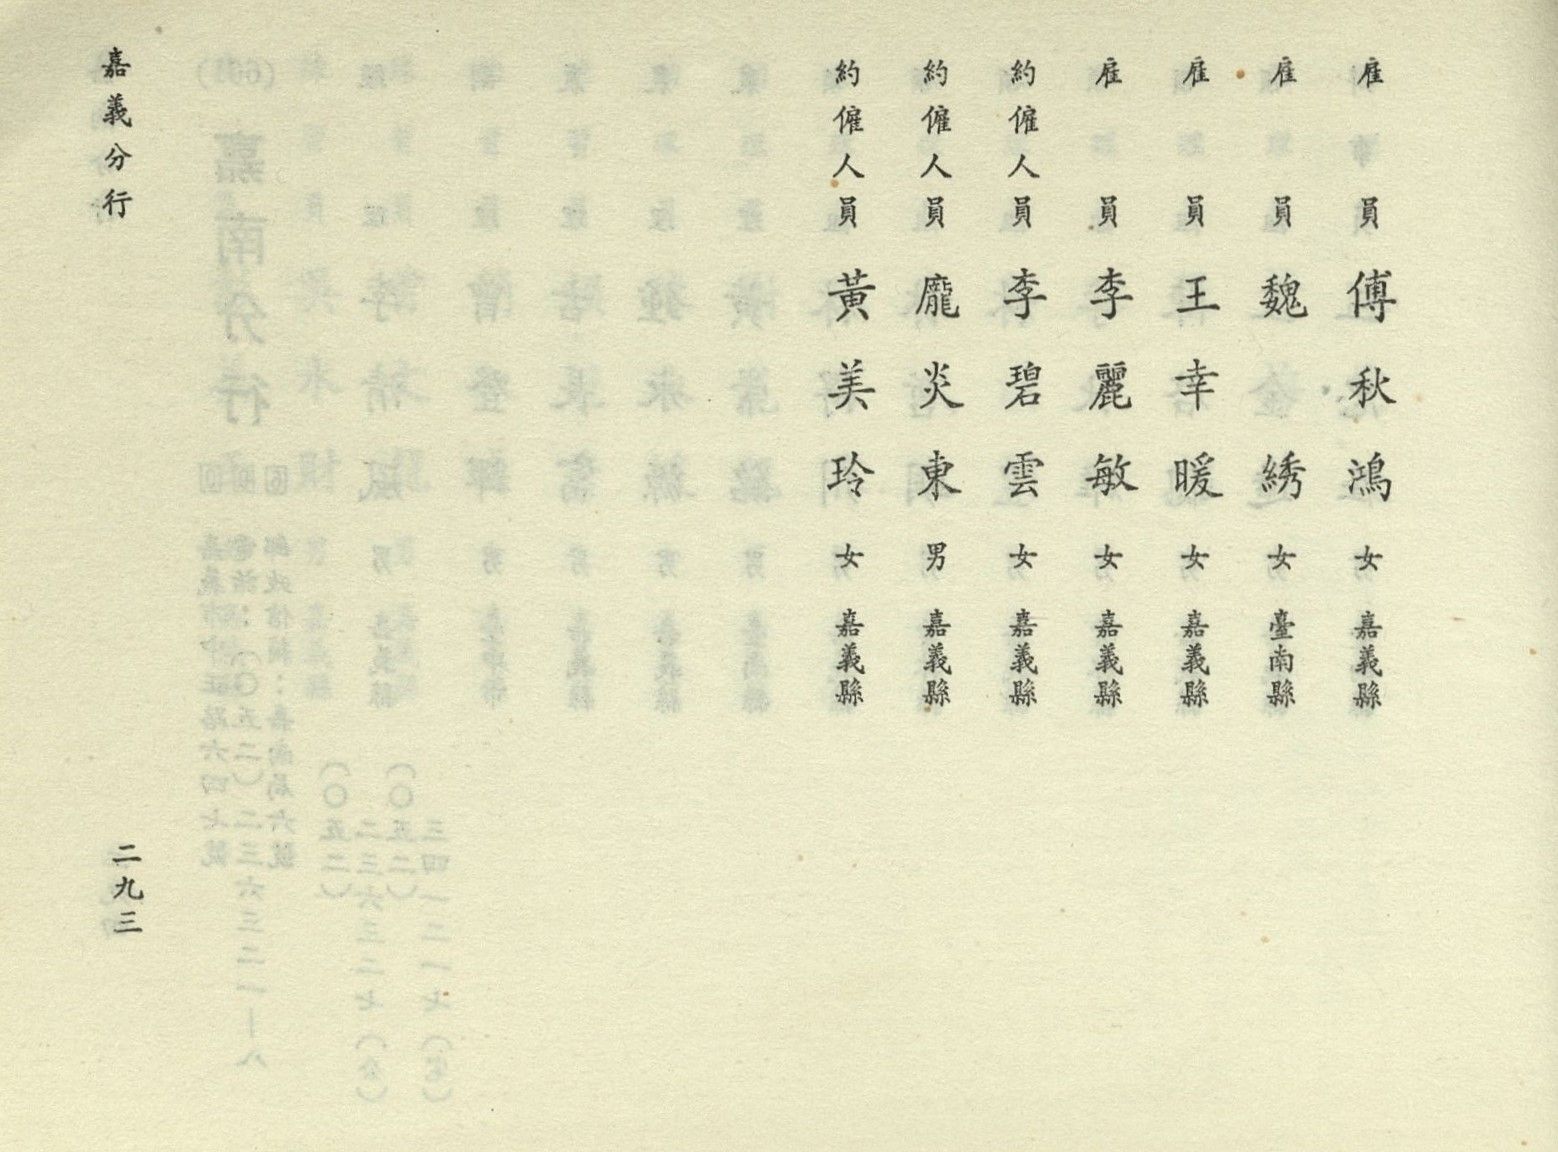 雇員傅秋鴻女嘉義縣
雇員魏綉女臺南縣
雇員王幸暖女嘉義縣
雇員李麗敏女嘉義縣
約僱人員李碧雲女嘉義縣
約僱人員龐炎東男嘉義縣
約僱人員黃美玲女嘉義縣
嘉義分行
二九三